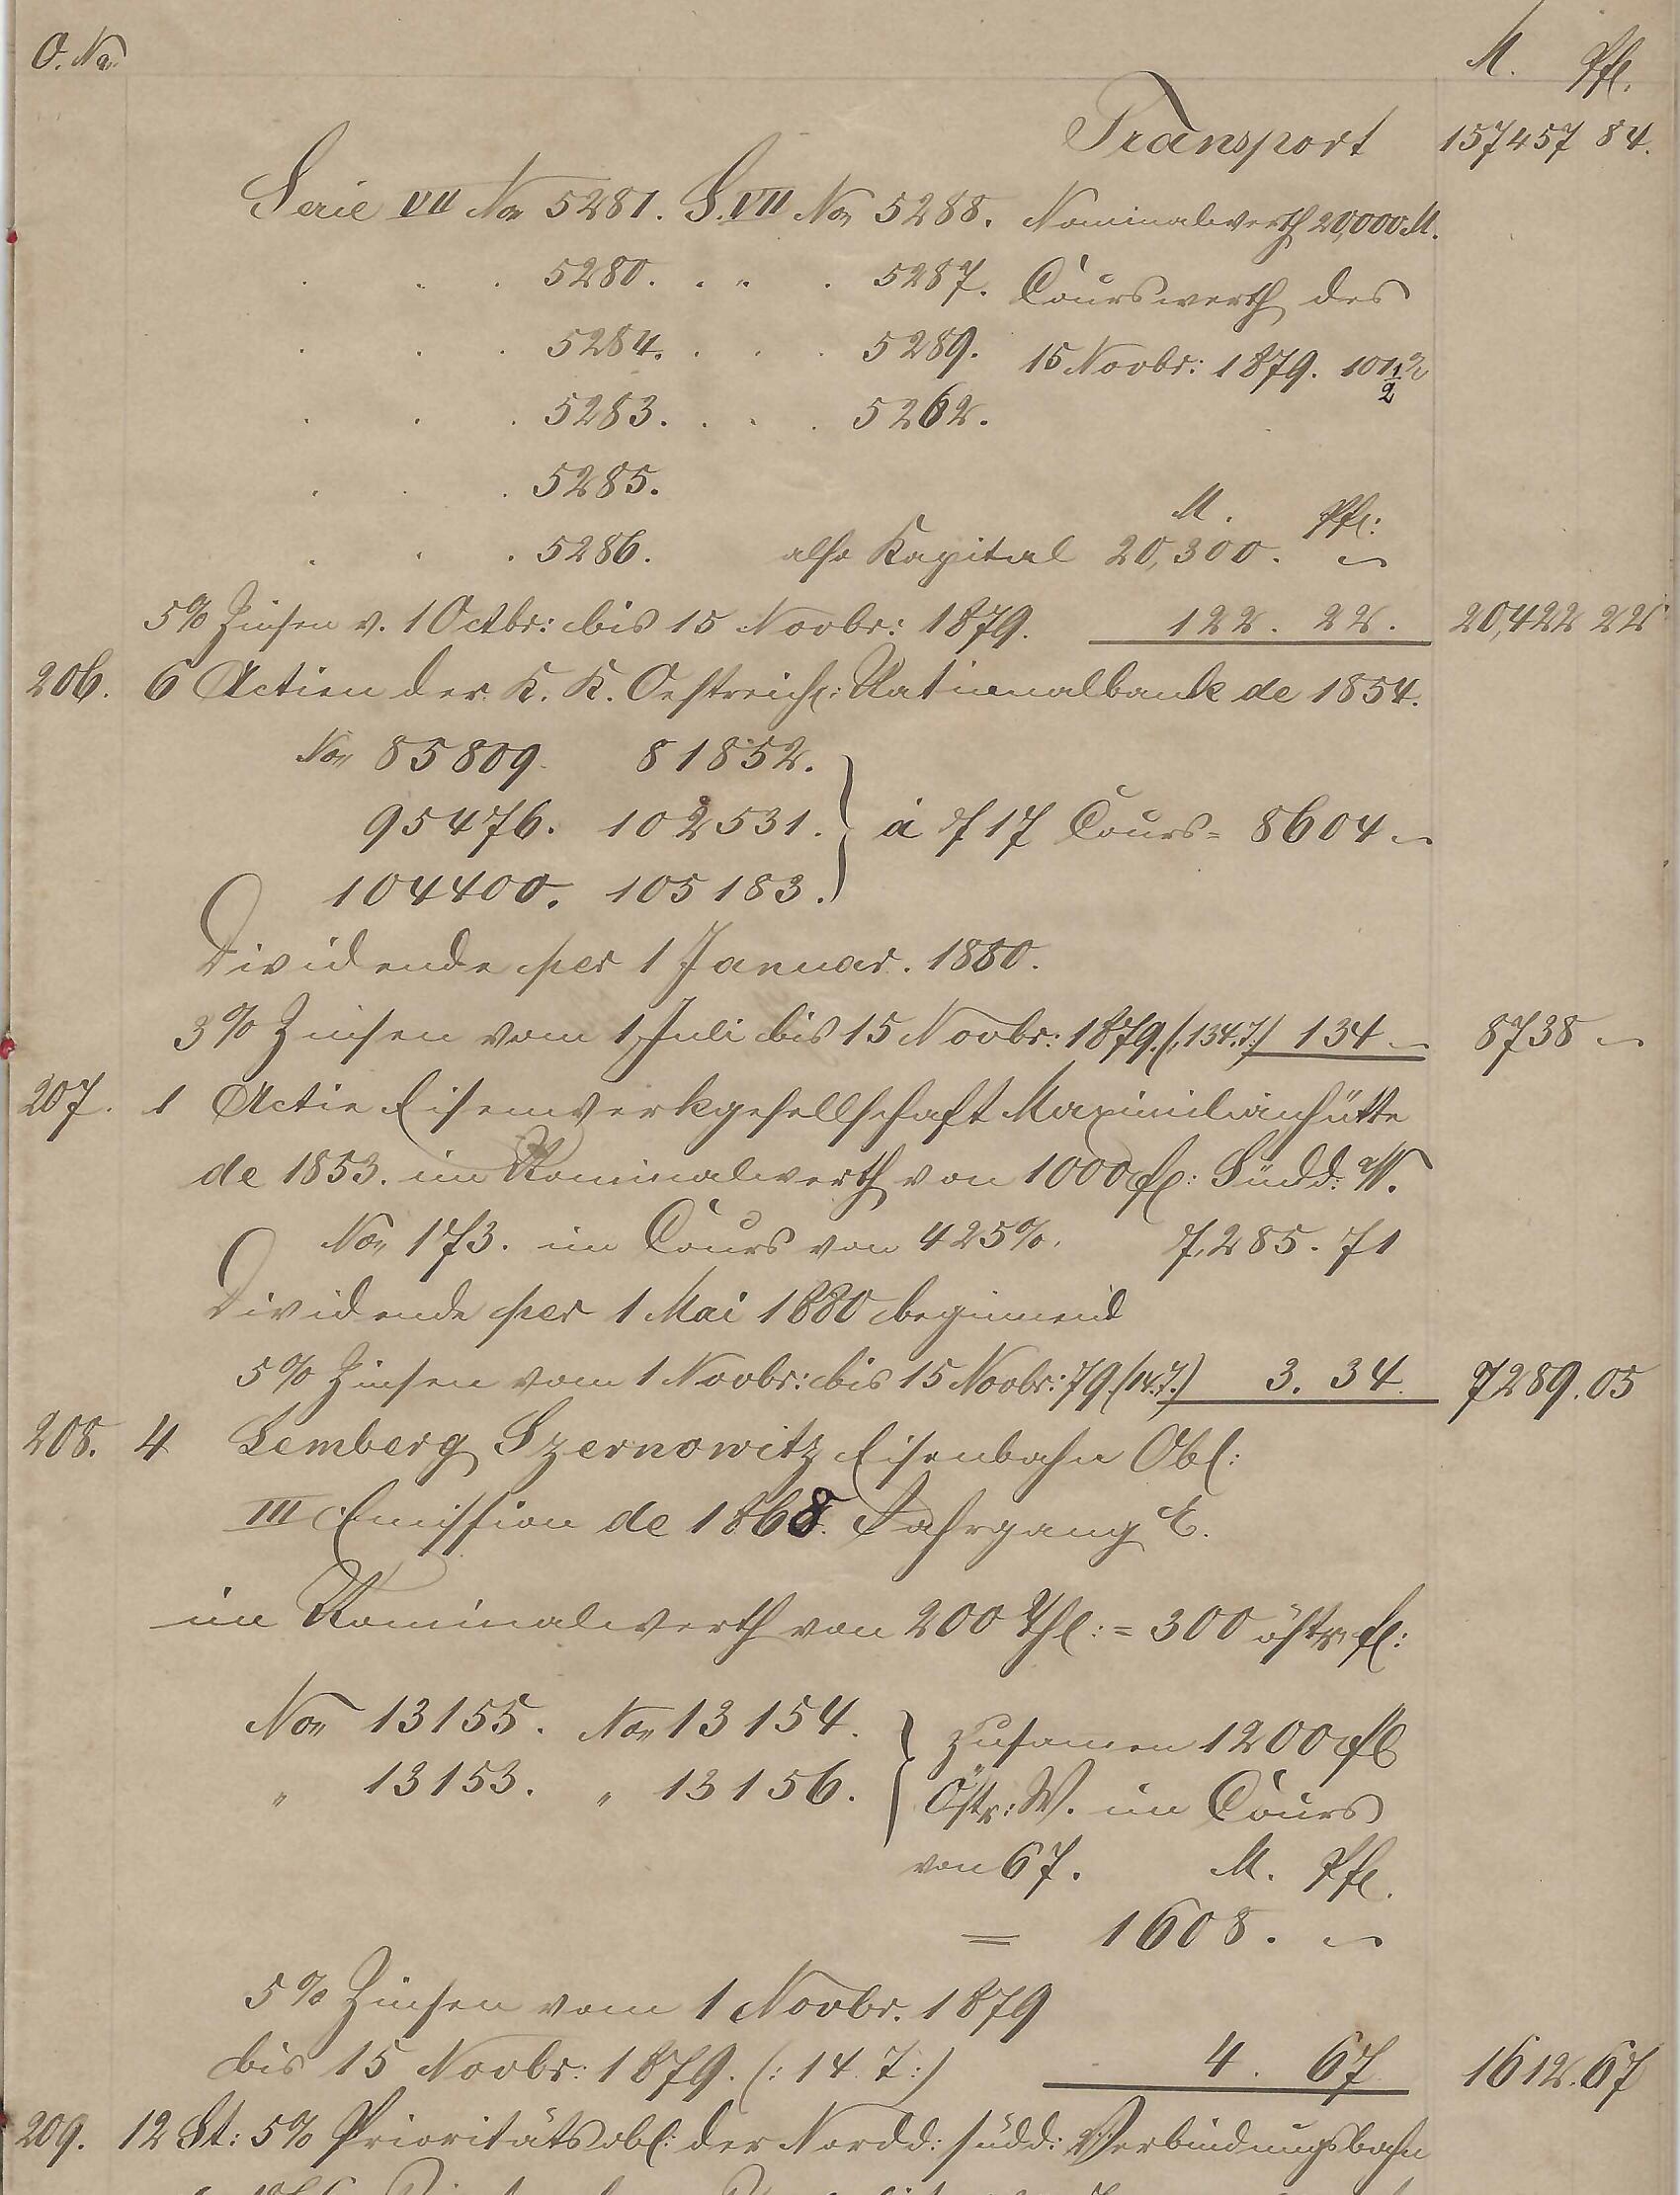 O. No. M. Pf.
Transport 157457 84.
Serie VII No 5281. S. VII No 5288. Nominalwerth 20,000 M.
. . . 5280. . " . 5287. Courswerth des
. . . 5284. . . . 5289. 15 Novbr: 1879. 101 1/2
. . . 5283. . . . 5262.
. . . 5285.
M. Pf:
. . . 5286. also Kapital 20,300. –
5% Zinsen v. 1 Octbr: bis 15 Novbr: 1879. 122. 22. 20,422 22
206. 6 Actien der K. K. Oestreich: Nationalbank de 1854.
No 85809. 81852.
95476. 102531. à 717 Cours = 8604 –
104400. 105183.
Dividende per 1 Januar. 1880.
3% Zinsen vom 1 Juli bis 15 Novbr: 1879. (:134. T:) 134 – 8738 –
207. 1 Actie Eisenwerkgesellschaft Maximilianhütte
de 1853. im Nominalwerth von 1000 fl: Südd: W.
No 173. im Cours von 425%. 7,285. 71
Dividende per 1 Mai 1880 beginnend
5% Zinsen vom 1 Novbr: bis 15 Novbr: 79 (14. T.) 3. 34. 7289. 05
208. 4 Lemberg Szernowitz Eisenbahn Obl:
III Emission de 1868. Jahrgang E.
im Nominalwerth von 200 Thl: = 300 östr. fl:
No 13155. No 13154. zusamen 1200 fl
" 13153. " 13156. Östr: W. im Cours
von 67. M. Pf.
= 1608. –
5% Zinsen vom 1 Novbr. 1879
bis 15 Novbr: 1879. (: 14. T:) 4. 67 1612. 67
209. 12 St: 5% Prioritätsobl: der Nordd: südd: Verbindungsbahn